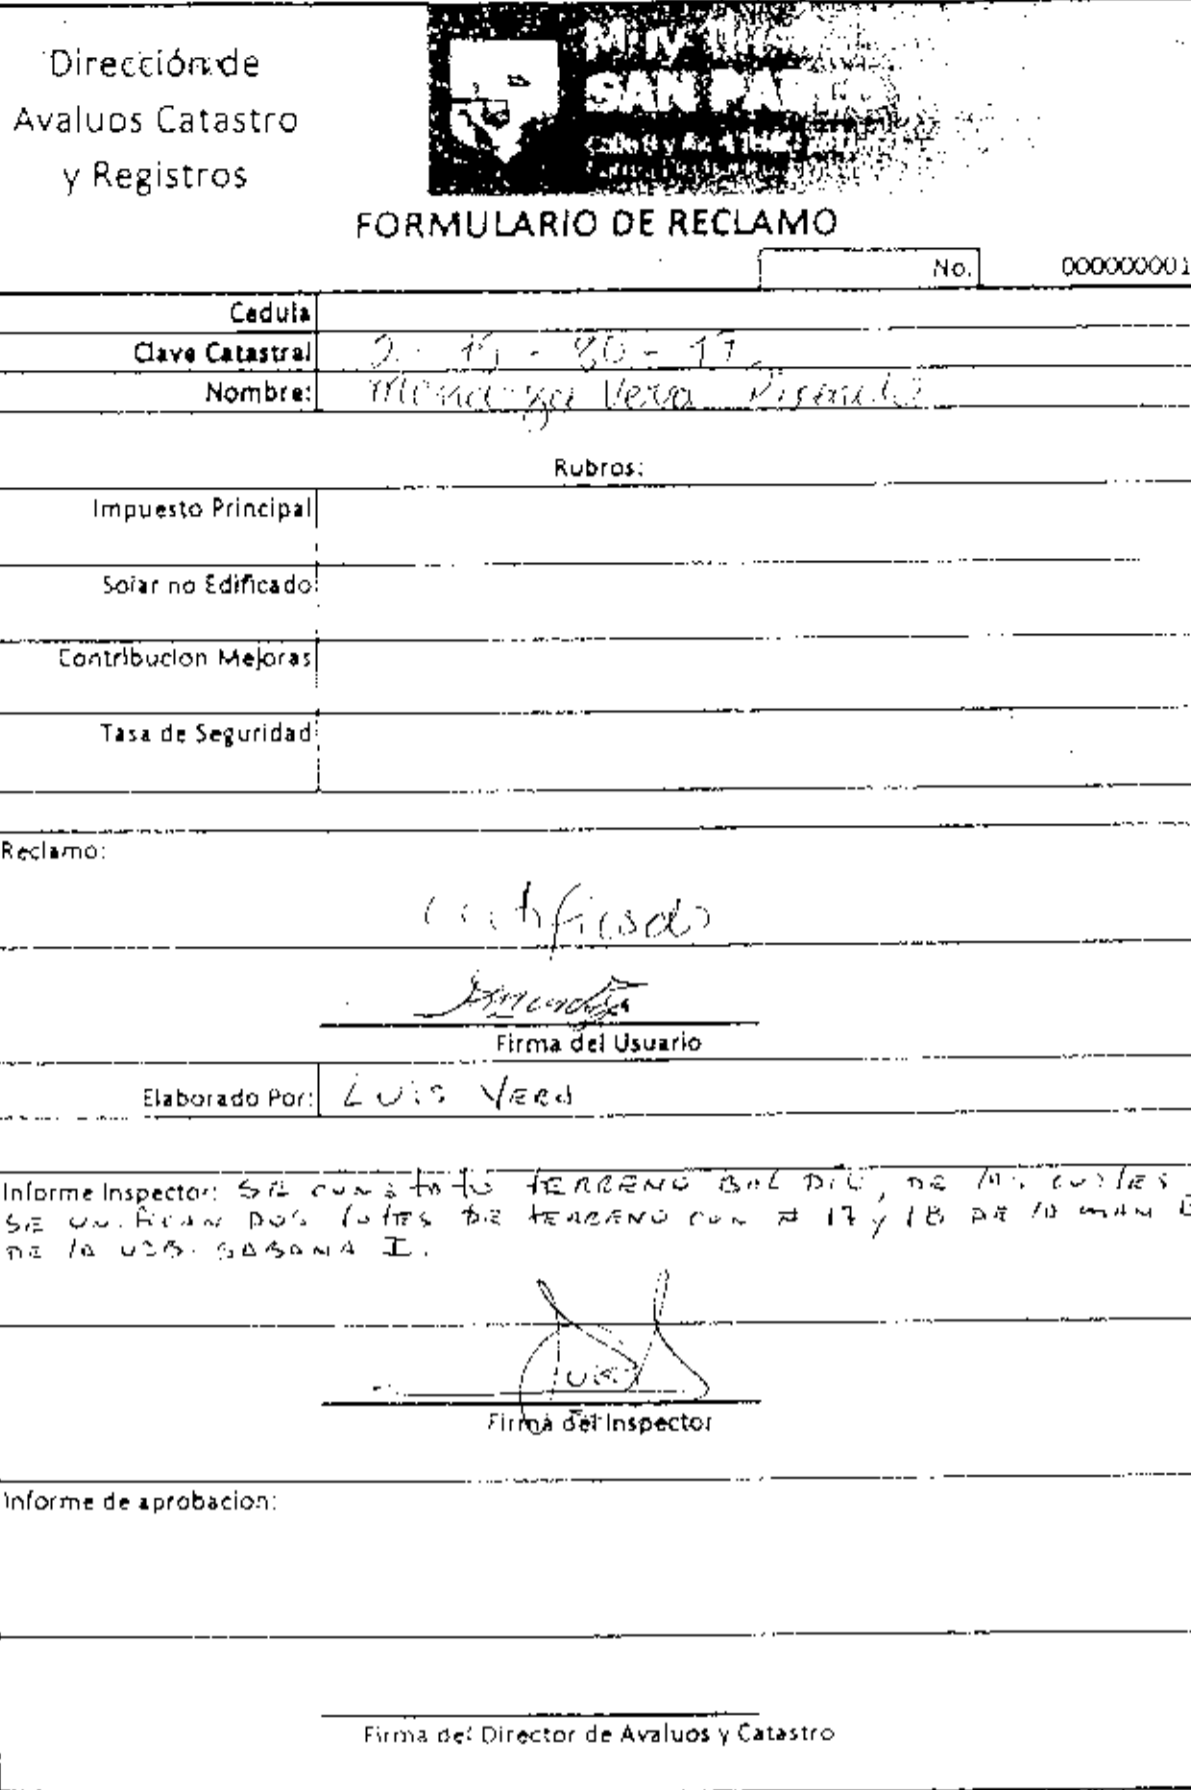 Dirección de
Avaluos Catastro
y Registros
SAN PA
FORMULARIO DE RECLAMO
No. 000000001
Cedula
Clave Catastral 2 - 15 - 80 - 17
Nombre: Mendoza Vera
Rubros:
Impuesto Principal
Solar no Edificado
Contribucion Mejoras
Tasa de Seguridad
Reclamo:
Certificado
Firma del Usuario
Elaborado Por: LUIS VERA
Informe Inspector: SE CONSTATO TERRENO BALDIO, DE LOS CUALES
SE UNIFICAN DOS LOTES DE TERRENO CON # 17 y 18 DE LA MAN
DE LA URB. SABANA I.
Firma del Inspector
Informe de aprobacion:
Firma del Director de Avaluos y Catastro